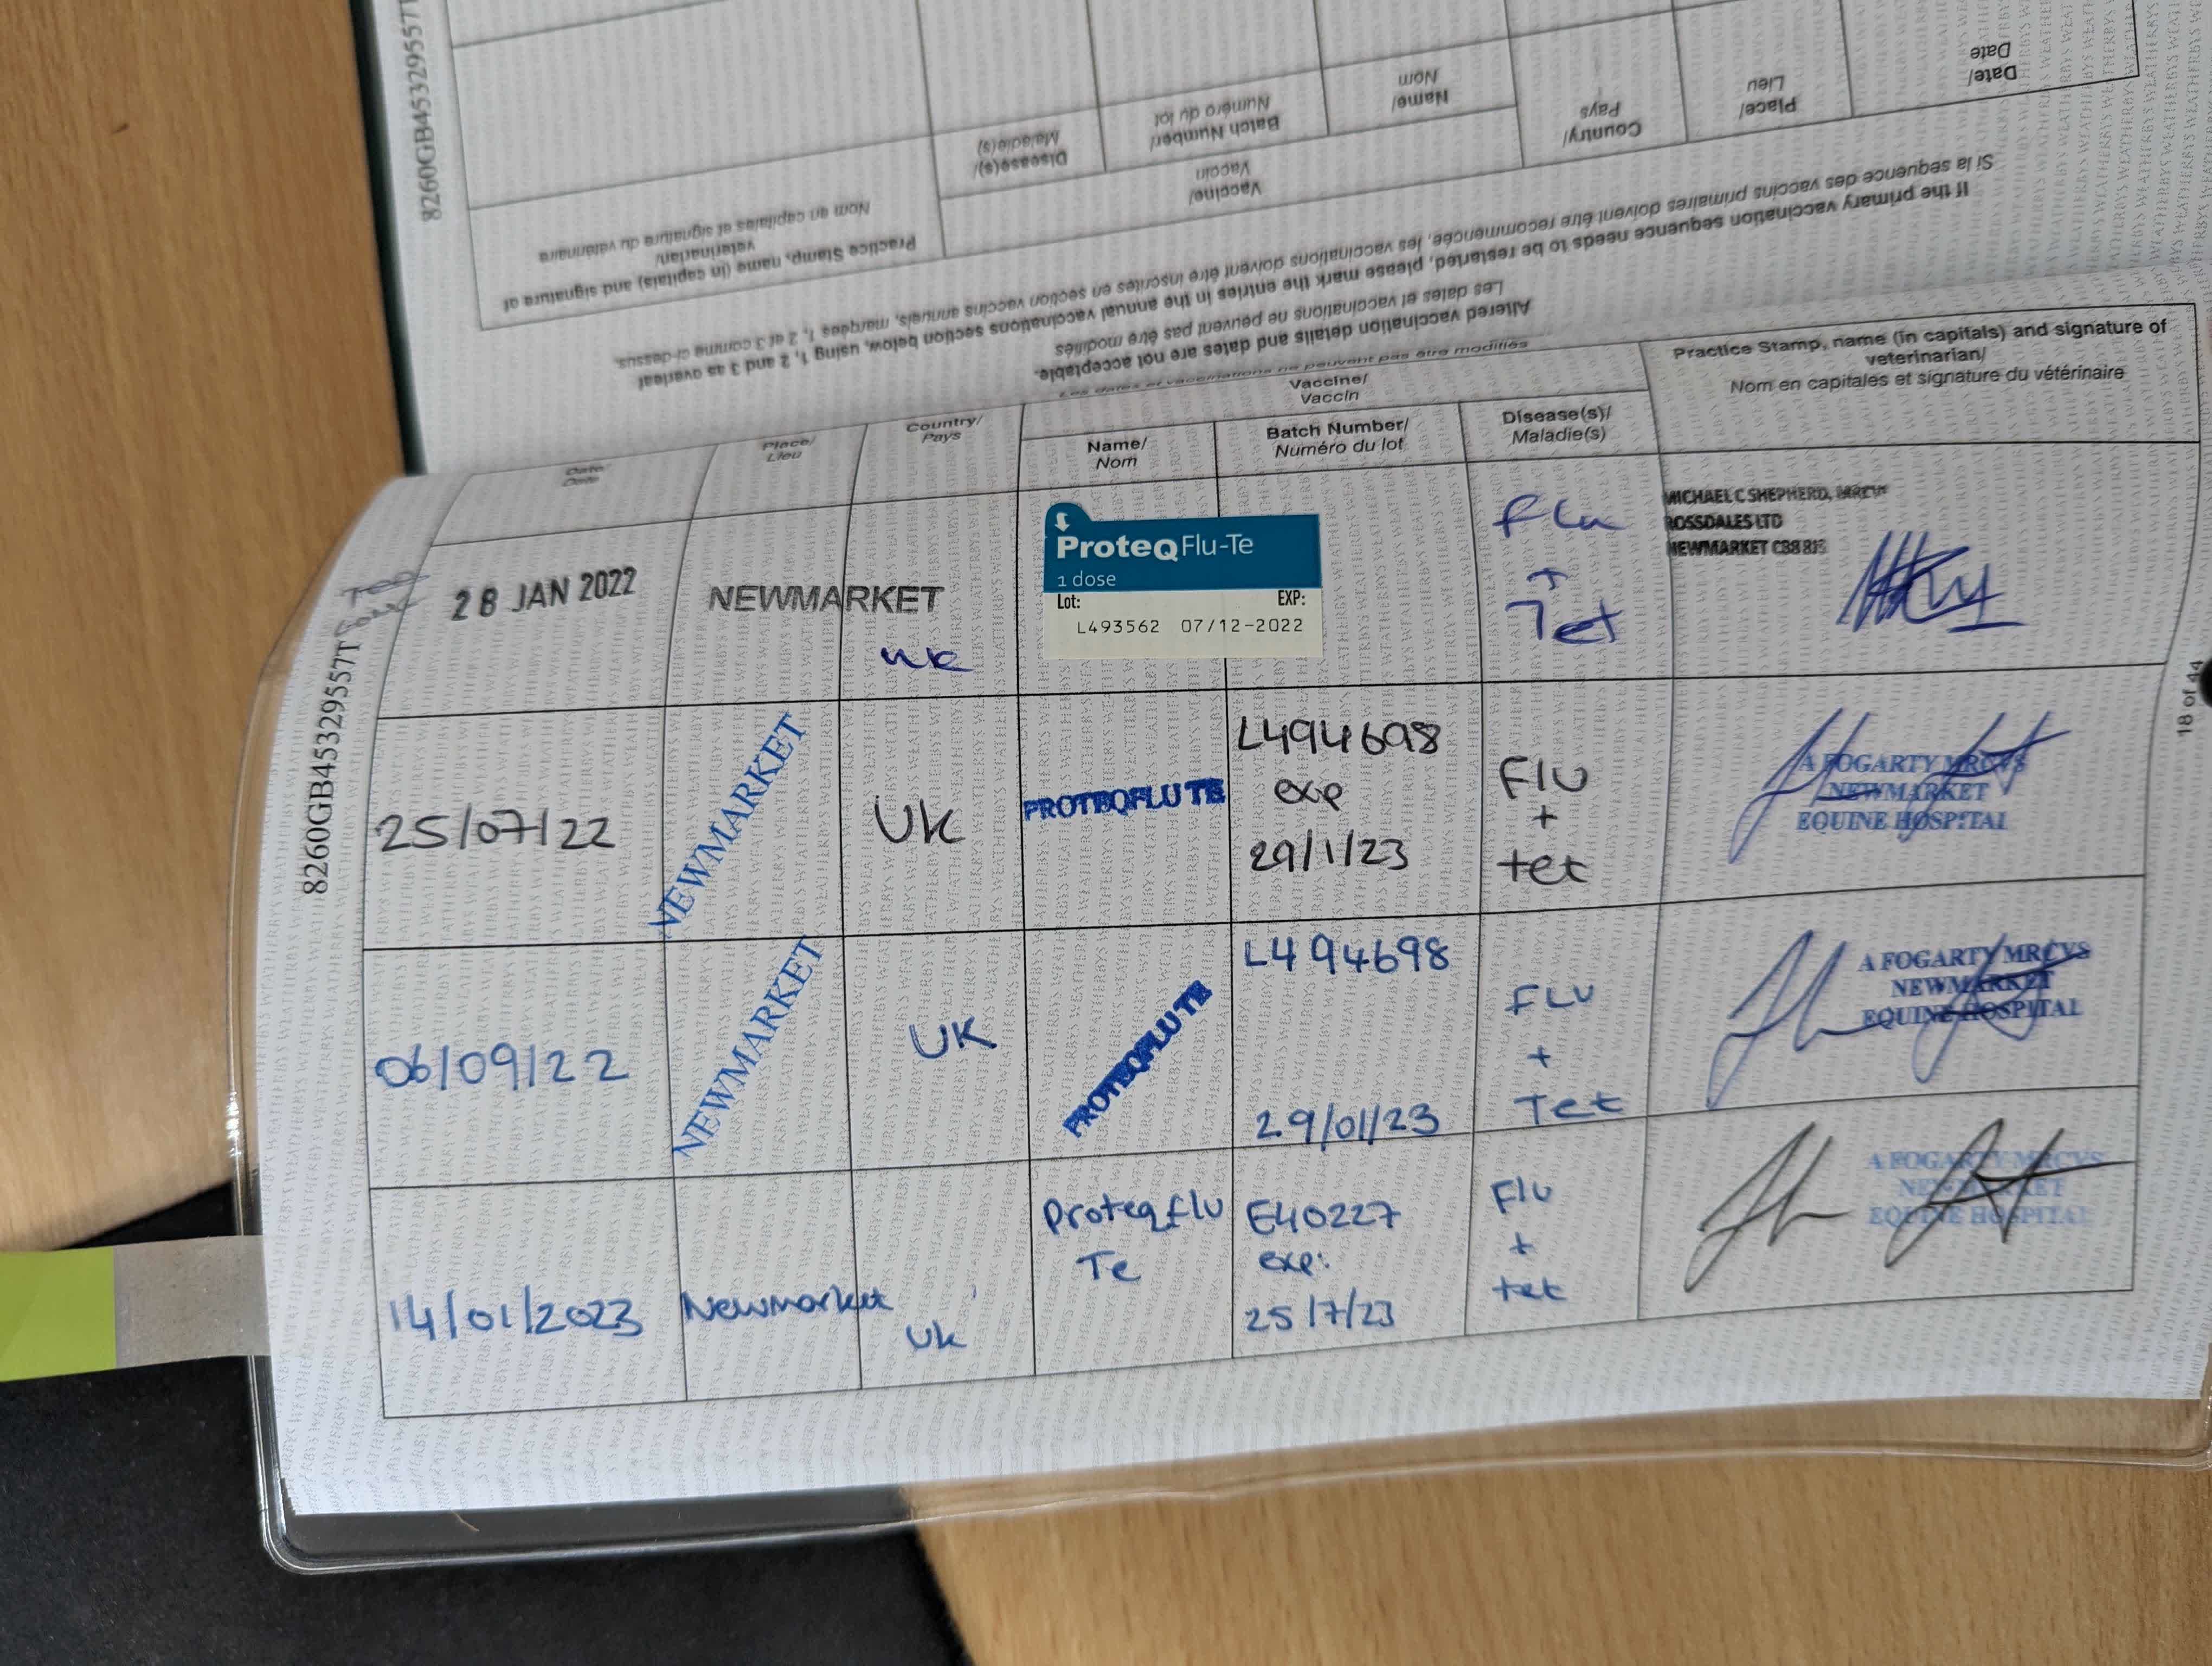 8260GB45329557T
Date/
Date
Place/
Lieu
Country/
Pays
Name/
Nom
Batch Number/
Numéro du lot
Disease(s)/
Maladie(s)
Vaccine/
Vaccin
Practice Stamp, name (in capitals) and signature of
veterinarian/
Nom en capitales et signature du vétérinaire
If the primary vaccination sequence needs to be restarted, please mark the entries in the annual vaccinations section below, using 1, 2 and 3 as overleaf
Si la sequence des vaccins primaires doivent être recommencée, les vaccinations doivent être inscrites en section vaccins annuels, marquées 1, 2 et 3 comme ci-dessus.
Altered vaccination details and dates are not acceptable.
Les dates et vaccinations ne peuvent pas être modifiés
Les dates et vaccinations ne peuvent pas être modifiés
Date/
Date
Place/
Lieu
Country/
Pays
Vaccine/
Vaccin
Name/
Nom
Batch Number/
Numéro du lot
Disease(s)/
Maladie(s)
Practice Stamp, name (in capitals) and signature of
veterinarian/
Nom en capitales et signature du vétérinaire
28 JAN 2022
NEWMARKET
UK
ProteqFlu-Te
1 dose
Lot: EXP:
L493562 07/12-2022
Flu
+
Tet
MICHAEL C SHEPHERD, MRCVS
ROSSDALES LTD
NEWMARKET
25/07/22
NEWMARKET
UK
PROTEQFLU TE
L494698
exp
29/1/23
Flu
+
tet
A FOGARTY MRCVS
NEWMARKET
EQUINE HOSPITAL
06/09/22
NEWMARKET
UK
PROTEQFLU TE
L494698
29/01/23
FLU
+
Tet
A FOGARTY MRCVS
NEWMARKET
EQUINE HOSPITAL
14/01/2023
Newmarket
Uk
Proteqflu
Te
E40227
exp:
25/7/23
Flu
+
tet
A FOGARTY MRCVS
NEWMARKET
EQUINE HOSPITAL
8260GB45329557T
18 of 44